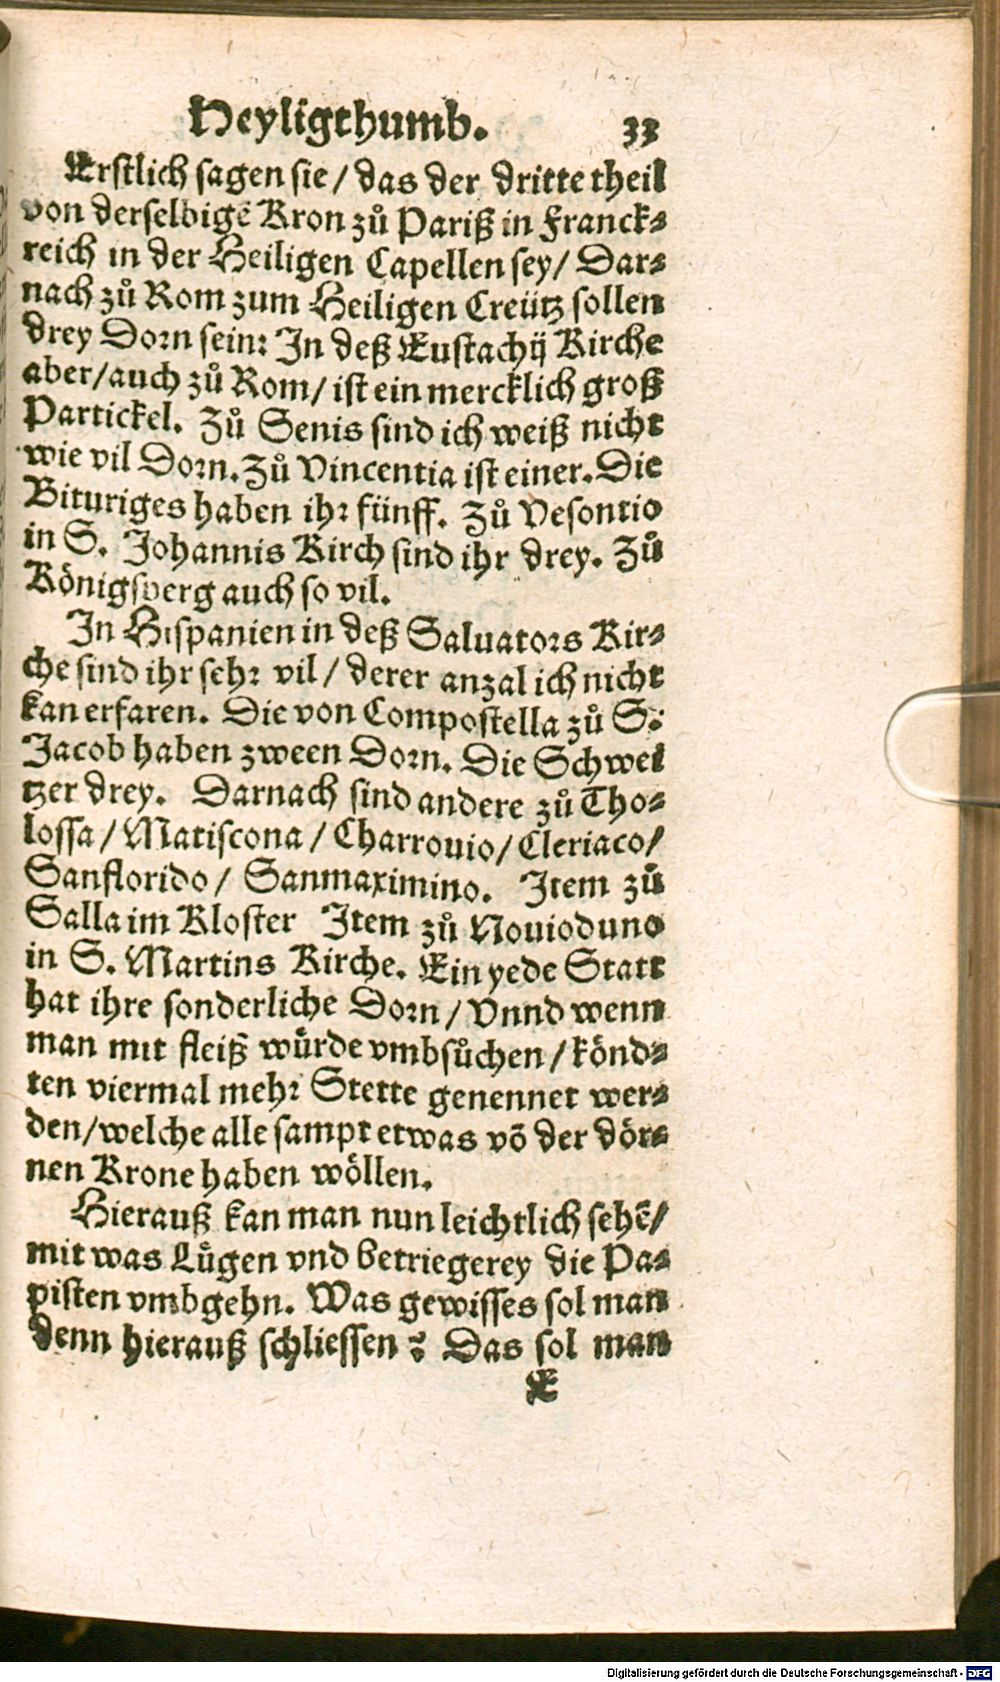 Heyligthumb. 33
Erstlich sagen sie / das der dritte theil
von derselbigē Kron zů Pariß in Franck⸗
reich in der Heiligen Capellen sey / Dar⸗
nach zů Rom zum Heiligen Creütz sollen
drey Dorn sein: In deß Eustachij Kirche
aber / auch zů Rom / ist ein mercklich groß
Partickel. Zů Senis sind ich weiß nicht
wie vil Dorn. Zů Vincentia ist einer. Die
Bituriges haben ihr fünff. Zů Vesontio
in S. Johannis Kirch sind ihr drey. Zů
Königsperg auch so vil.
In Hispanien in deß Saluators Kir⸗
che sind ihr sehr vil / derer anzal ich nicht
kan erfaren. Die von Compostella zů S.
Jacob haben zween Dorn. Die Schwei
tzer drey. Darnach sind andere zů Tho⸗
lossa / Matiscona / Charrouio / Cleriaco /
Sanflorido / Sanmaximino. Item zů
Salla im Kloster Item zů Nouioduno
in S. Martins Kirche. Ein yede Statt
hat ihre sonderliche Dorn / Vnnd wenn
man mit fleiß würde vmbsůchen / könd⸗
ten viermal mehr Stette genennet wer⸗
den / welche alle sampt etwas võ der dör⸗
nen Krone haben wöllen.
Hierauß kan man nun leichtlich sehē /
mit was Lůgen vnd betriegerey die Pa⸗
pisten vmbgehn. Was gewisses sol man
denn hierauß schliessen? Das sol man
E
Digitalisierung gefördert durch die Deutsche Forschungsgemeinschaft - DFG